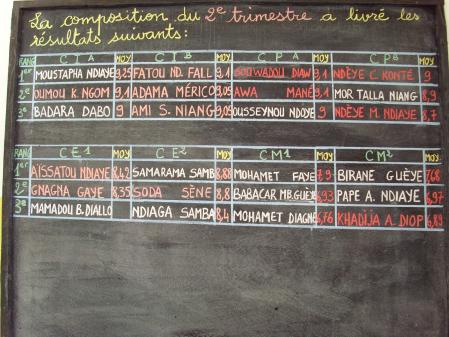 La composition du 2e trimestre a livré les
résultats suivants:
RANG CIA MOY CIB MOY CPA MOY CPB MOY
1er MOUSTAPHA NDIAYE 9,25 FATOU ND. FALL 9,1 GOUWADOU DIAW 9,1 NDÈYE C. KONTÉ 9
2e OUMOU K. NGOM 9,1 ADAMA MÉRICO 9,05 AWA MANÉ 9,1 MOR TALLA NIANG 8,9
3e BADARA DABO 9 AMI S. NIANG 9,05 OUSSEYNOU NDOYE 9 NDÈYE M. NDIAYE 8,7
RANG CE1 MOY CE2 MOY CM1 MOY CM2 MOY
1er AÏSSATOU NDIAYE 8,42 SAMARAMA SAMB 8,88 MOHAMET FAYE BIRANE GUÈYE
2e GNAGNA GAYE 8,35 SODA SÈNE 8,8 BABACAR MB. GUÈYE PAPE A. NDIAYE 6,97
3e MAMADOU B. DIALLO NDIAGA SAMBA 8,4 MOHAMET DIAGNE 6,76 KHADÏJA A. DIOP 6,89